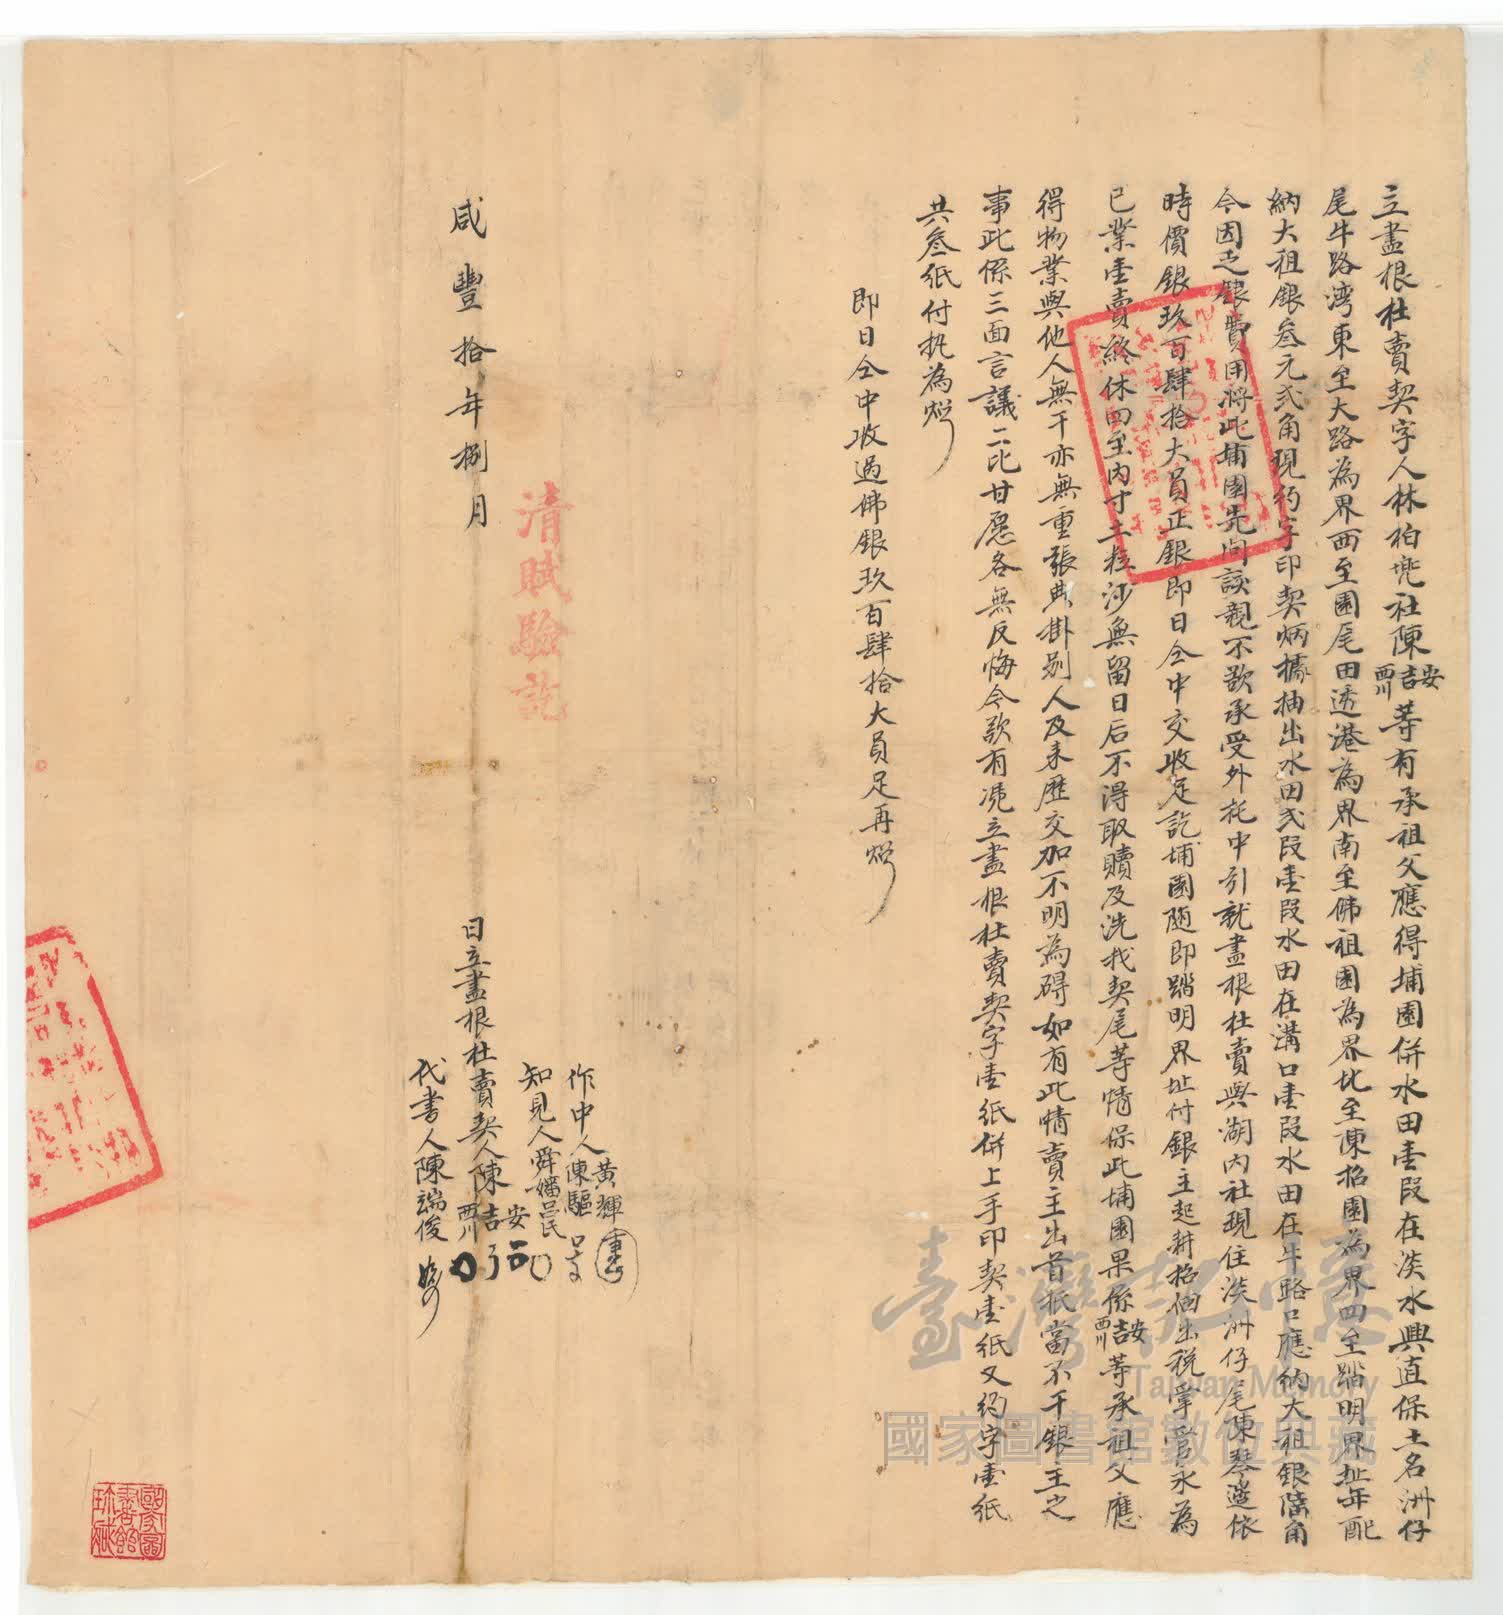 立盡根杜賣契字人林柏兠社陳安吉西川等有承祖父應得埔園併水田壹段在淡水興直保土名洲仔
尾牛路湾東至大路為界西至園尾田透港為界南至佛祖園為界北至陳招園為界四至踏明界址年配
納大租銀叁元弍角現約字印契炳據抽出水田弍段壹段水田在溝口壹段水田在牛路口應納大租銀角
今因乏銀費用將此埔園先問該親不欲承受外托中引就盡根杜賣與湖內社現住淡洲仔尾陳琴遂依
時價銀玖百肆拾大員正銀即日仝中交收足訖埔園隨即踏明界址付銀主起耕招佃出稅掌管永為
己業壹賣終休四至內寸土粒沙無留日后不得取贖及洗找契尾等情保此埔園果係安吉西川等承祖父應
得物業與他人無干亦無重張典掛別人及来歷交加不明為碍如有此情賣主出首抵當不干銀主之
事此係三面言議二比甘愿各無反悔今欲有凭立盡根杜賣契字壹紙併上手印契壹紙又約字壹紙
共叁紙付执為炤
即日仝中收過佛銀玖百肆拾大員足再炤
作中人黃輝 陳驅
知見人舜嬸呂氏
咸豐拾年捌月 日立盡根杜賣契人陳安吉西川
代書人陳端俊
清賦驗訖
國家圖書館珍藏
臺灣記憶
Taiwan Memory
國家圖書館數位典藏